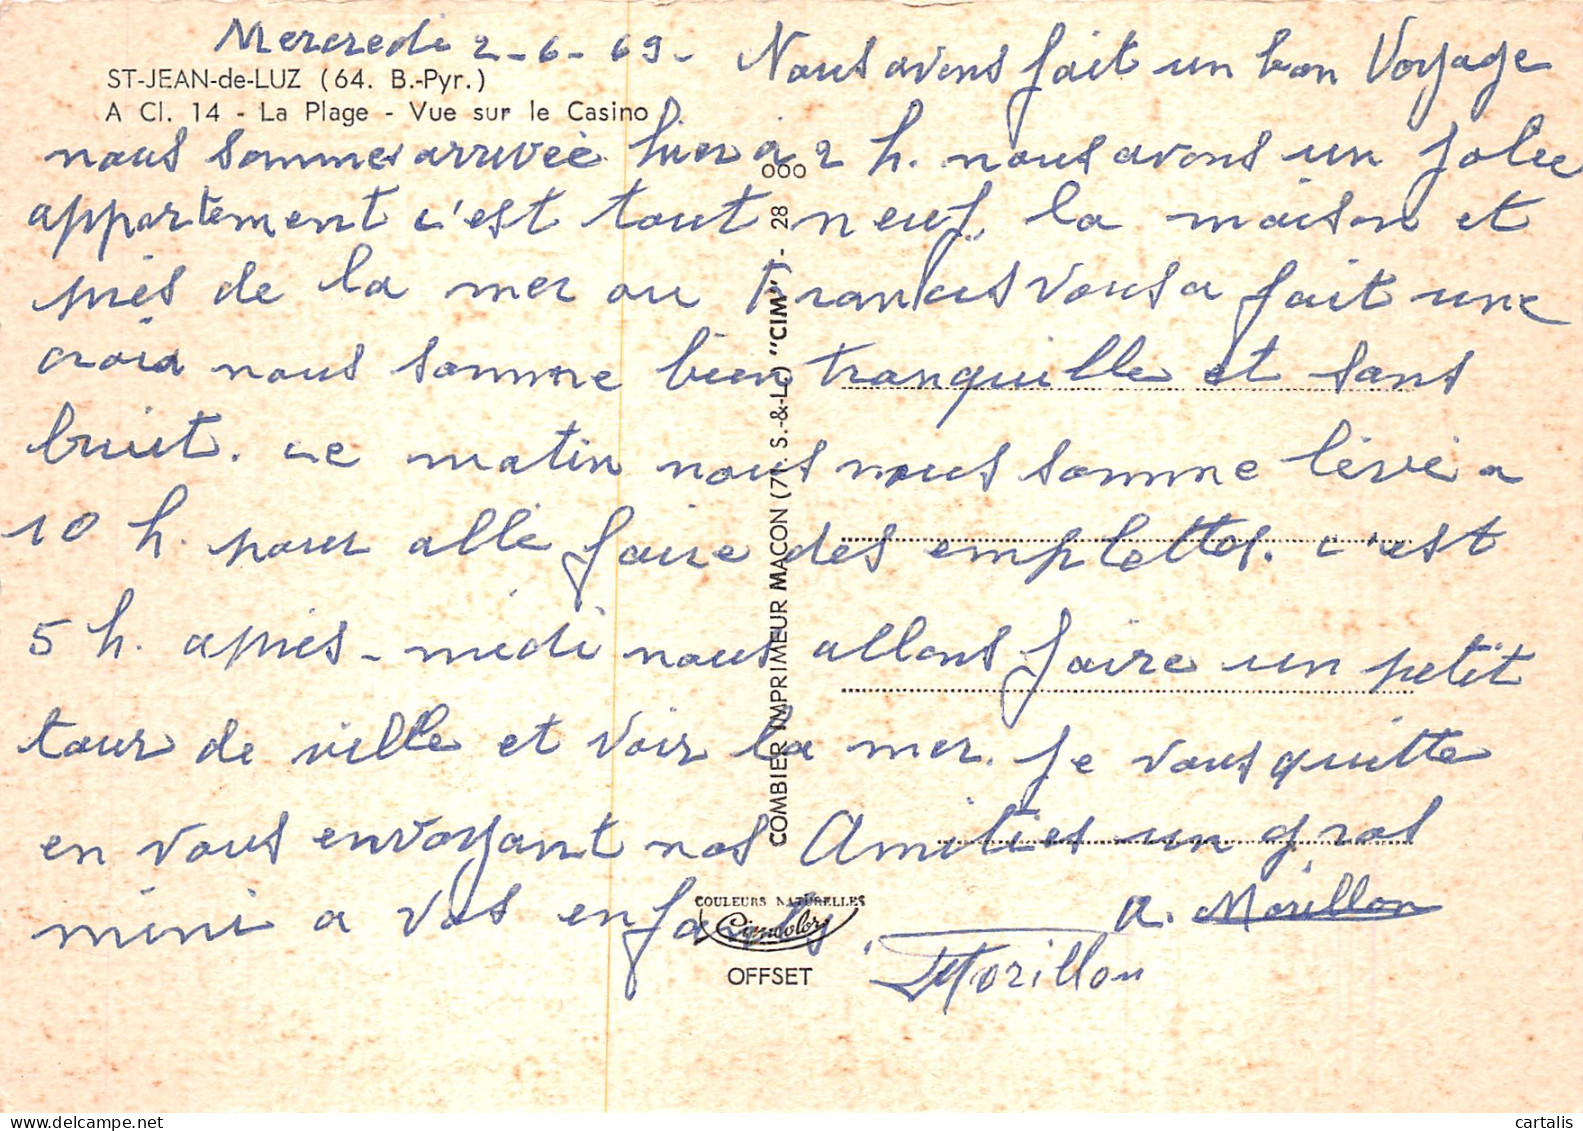 Mercredi 2-6-69- Nous avons fait un bon Voyage
ST-JEAN-de-LUZ (64. B.-Pyr.)
A Cl. 14 - La Plage - Vue sur le Casino
nous sommes arrivée hier à 2 h. nous avons un jolie
appartement c'est tout neuf, la maison et
près de la mer ou Francis vous a fait une
croix nous somme bien tranquille et sans
bruit. ce matin nous nous somme lévé a
10 h. pour allé faire des emplettes. c'est
5 h. après-midi nous allons faire un petit
tour de ville et voir la mer. je vous quitte
en vous envoyant nos Amitiés un gros
mimi a vos enfants. a. Morillon
Morillon
000
COMBIER IMPRIMEUR MACON (71. S.-&-L.) "CIM" - 28
COULEURS NATURELLES
Cimcolor
OFFSET
cartalis